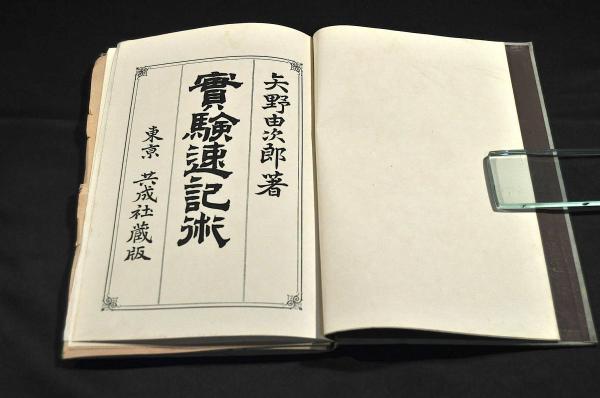 矢野由次郎著
實驗速記術
東京 共成社蔵版